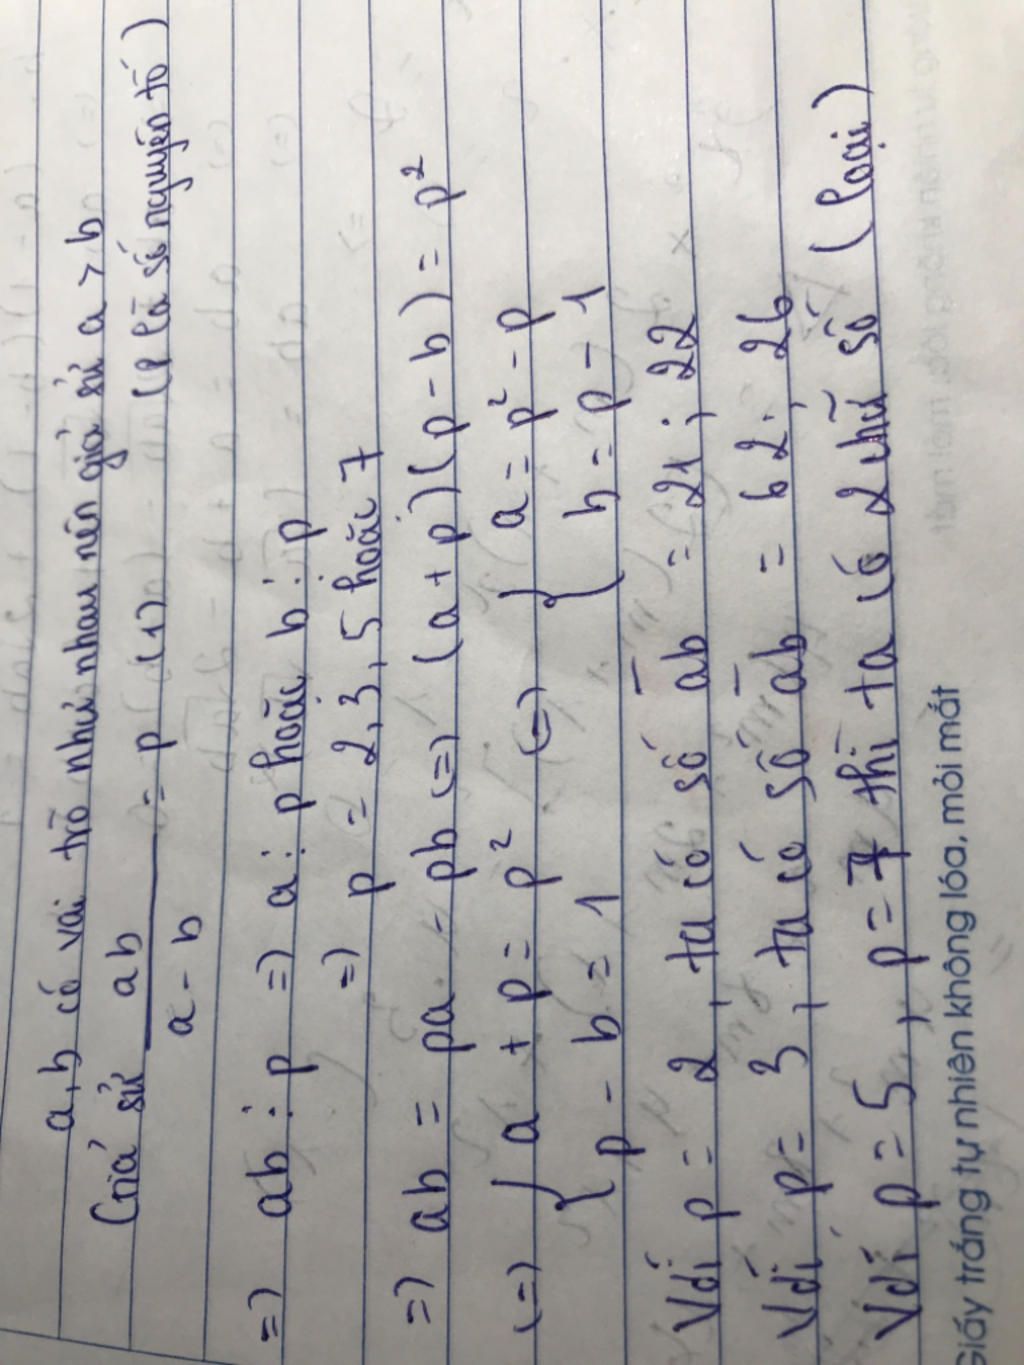 a, b có vai trò như nhau nên giả sử a > b
Giả sử ab / a - b = p (1) (p là số nguyên tố)
=> ab ⋮ p => a ⋮ p hoặc b ⋮ p
=> p = 2, 3, 5 hoặc 7
=> ab = pa - pb <=> (a + p)(p - b) = p²
<=> { a + p = p² <=> { a = p² - p
p - b = 1 b = p - 1
Với p = 2, ta có số ab = 21; 22
Với p = 3, ta có số ab = 62; 26
Với p = 5, p = 7 thì ta có 2 chữ số (loại)
Giấy trắng tự nhiên không lóa, mỏi mắt